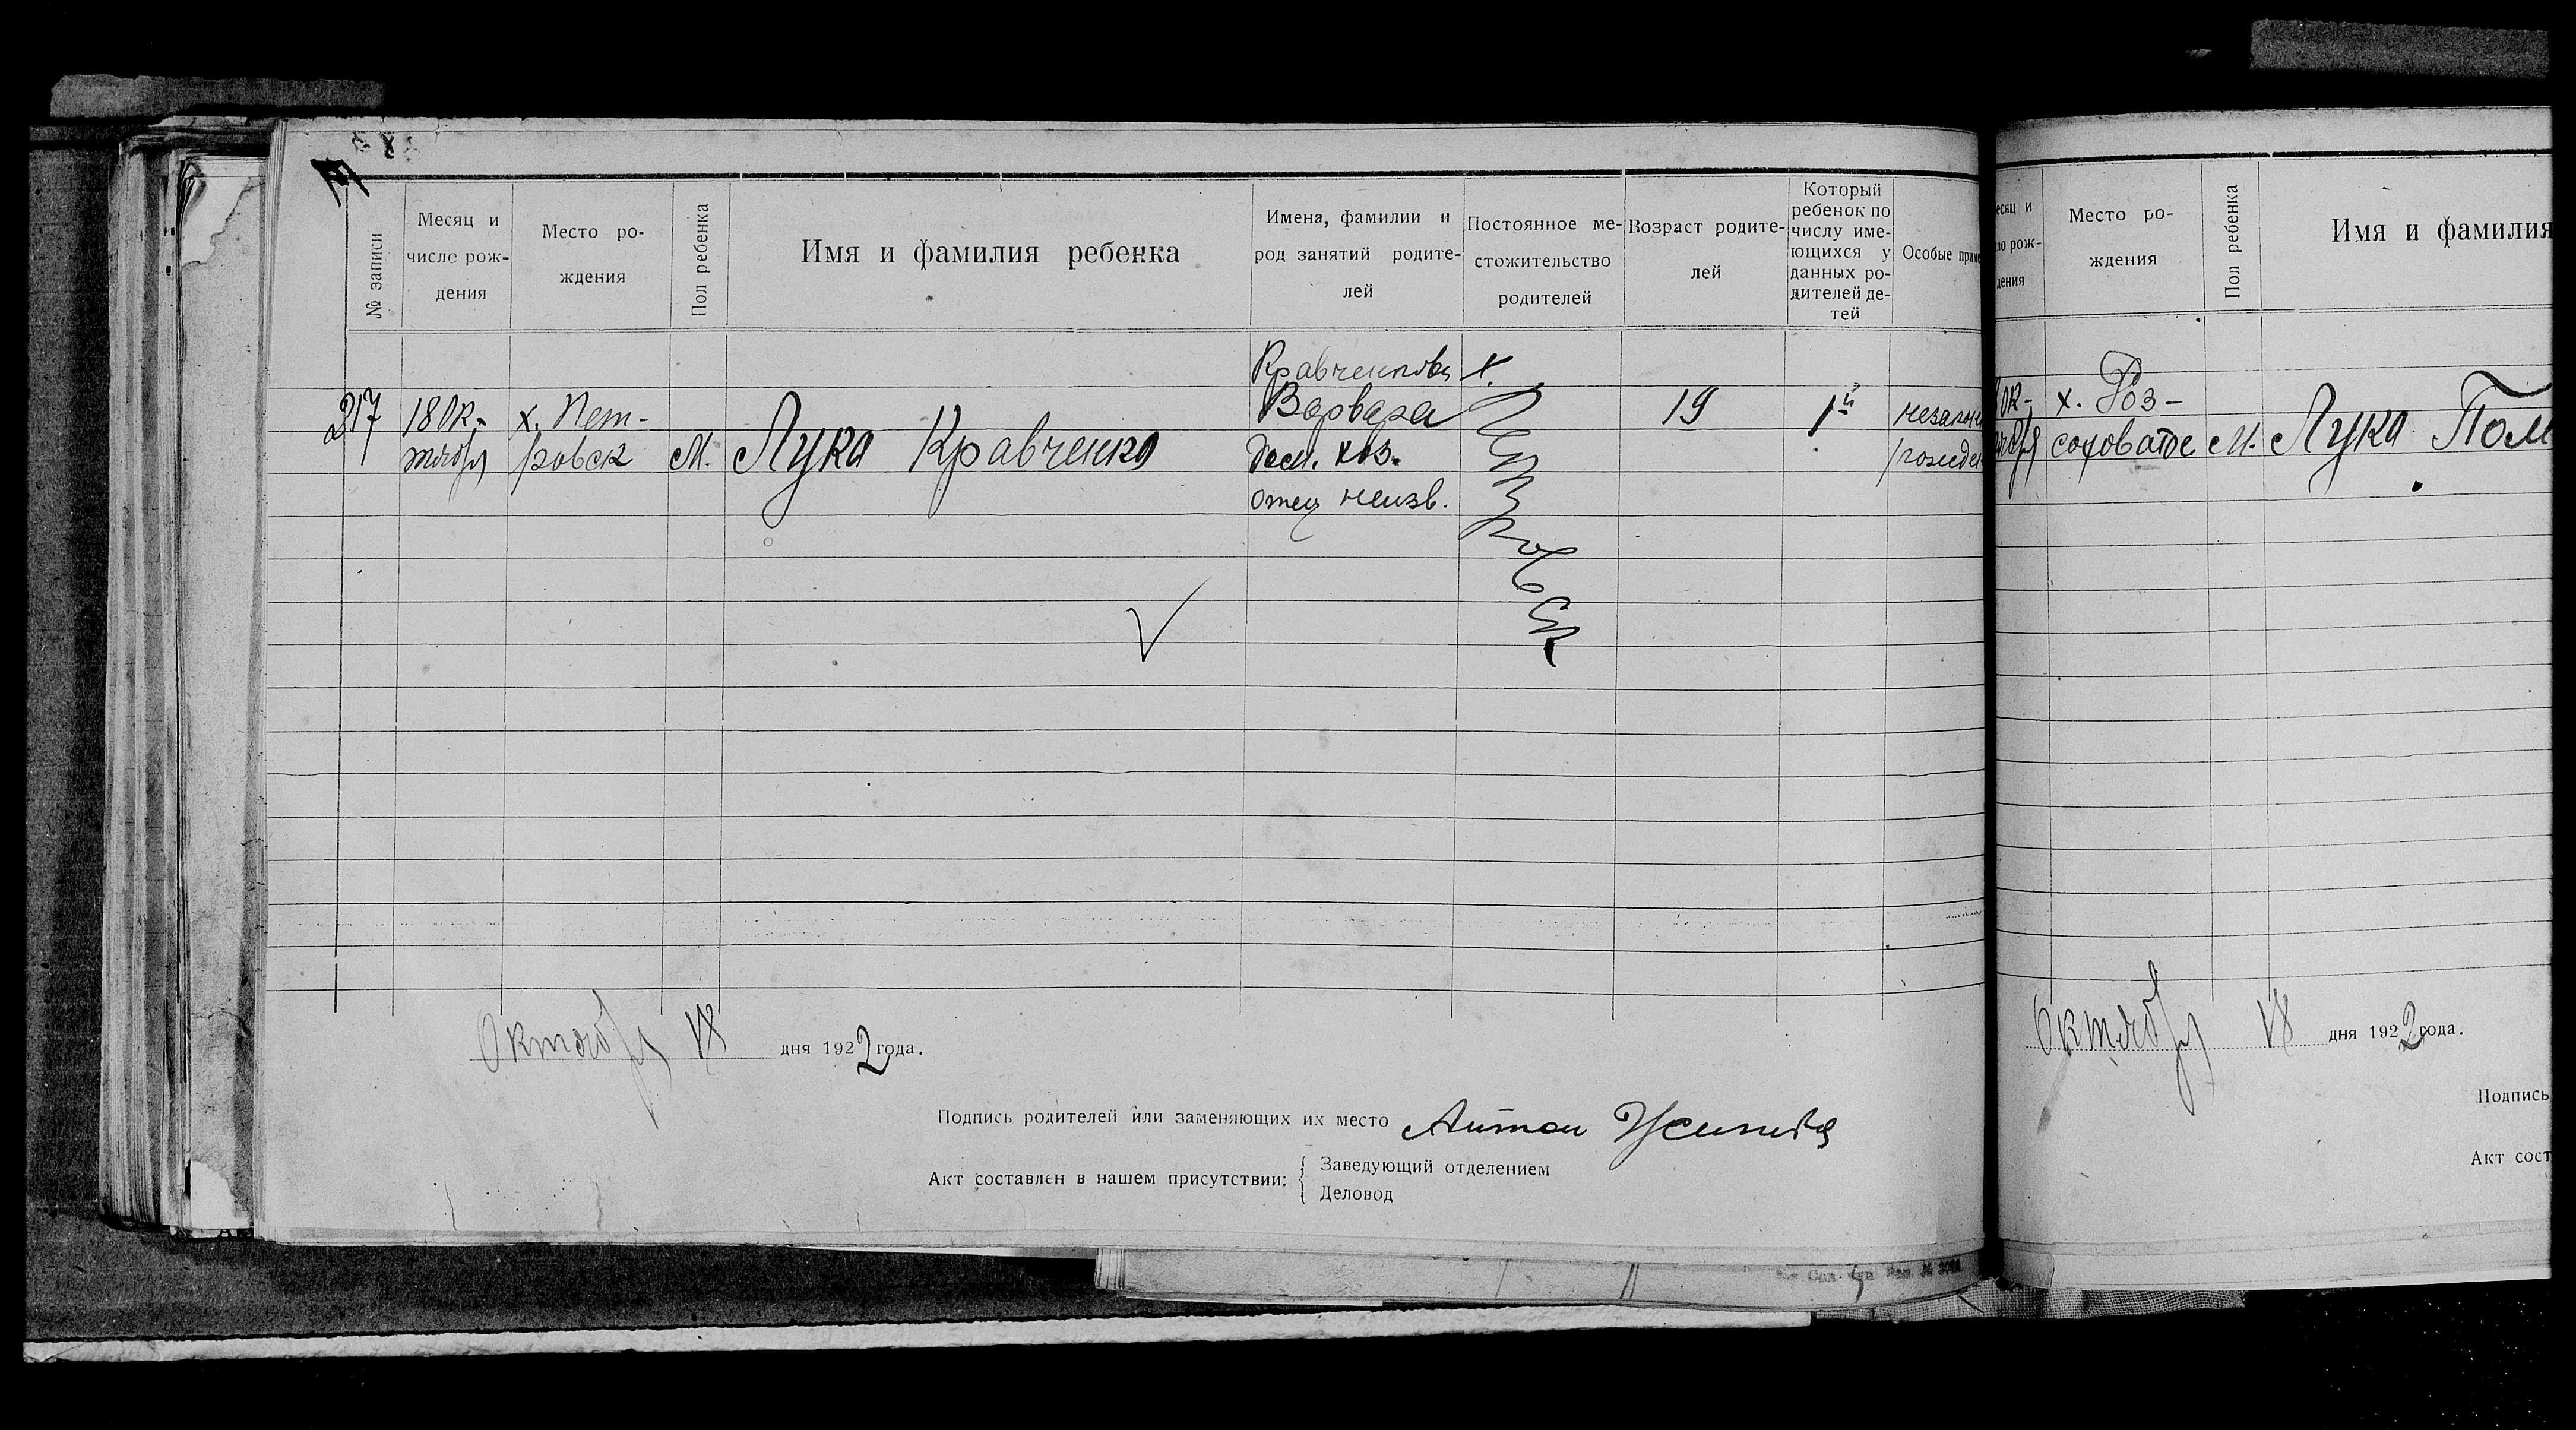 № записи
Месяц и
число рож-
дения
Место ро-
ждения
Пол ребенка
Имя и фамилия ребенка
Имена, фамилии и
род занятий родите-
лей
Постоянное ме-
стожительство
родителей
Возраст родите-
лей
Который
ребенок по
числу име-
ющихся у
данных ро-
дителей де-
тей
Особые приме
217
18 Ок-
тября
х. Пет-
ровск
М.
Лука Кравченко
Варвара
отец неизв.
х.
Петровск
19
1й
Октября 18 дня 1922 года.
Подпись родителей или заменяющих их место Антон
Акт составлен в нашем присутствии:
Заведующий отделением
Деловод
есяц и
ло рож-
дения
Место ро-
ждения
Пол ребенка
Имя и фамилия
Ок-
х. Роз-
М.
Лука Пом
Октября 18 дня 1922 года.
Подпись
Акт сост